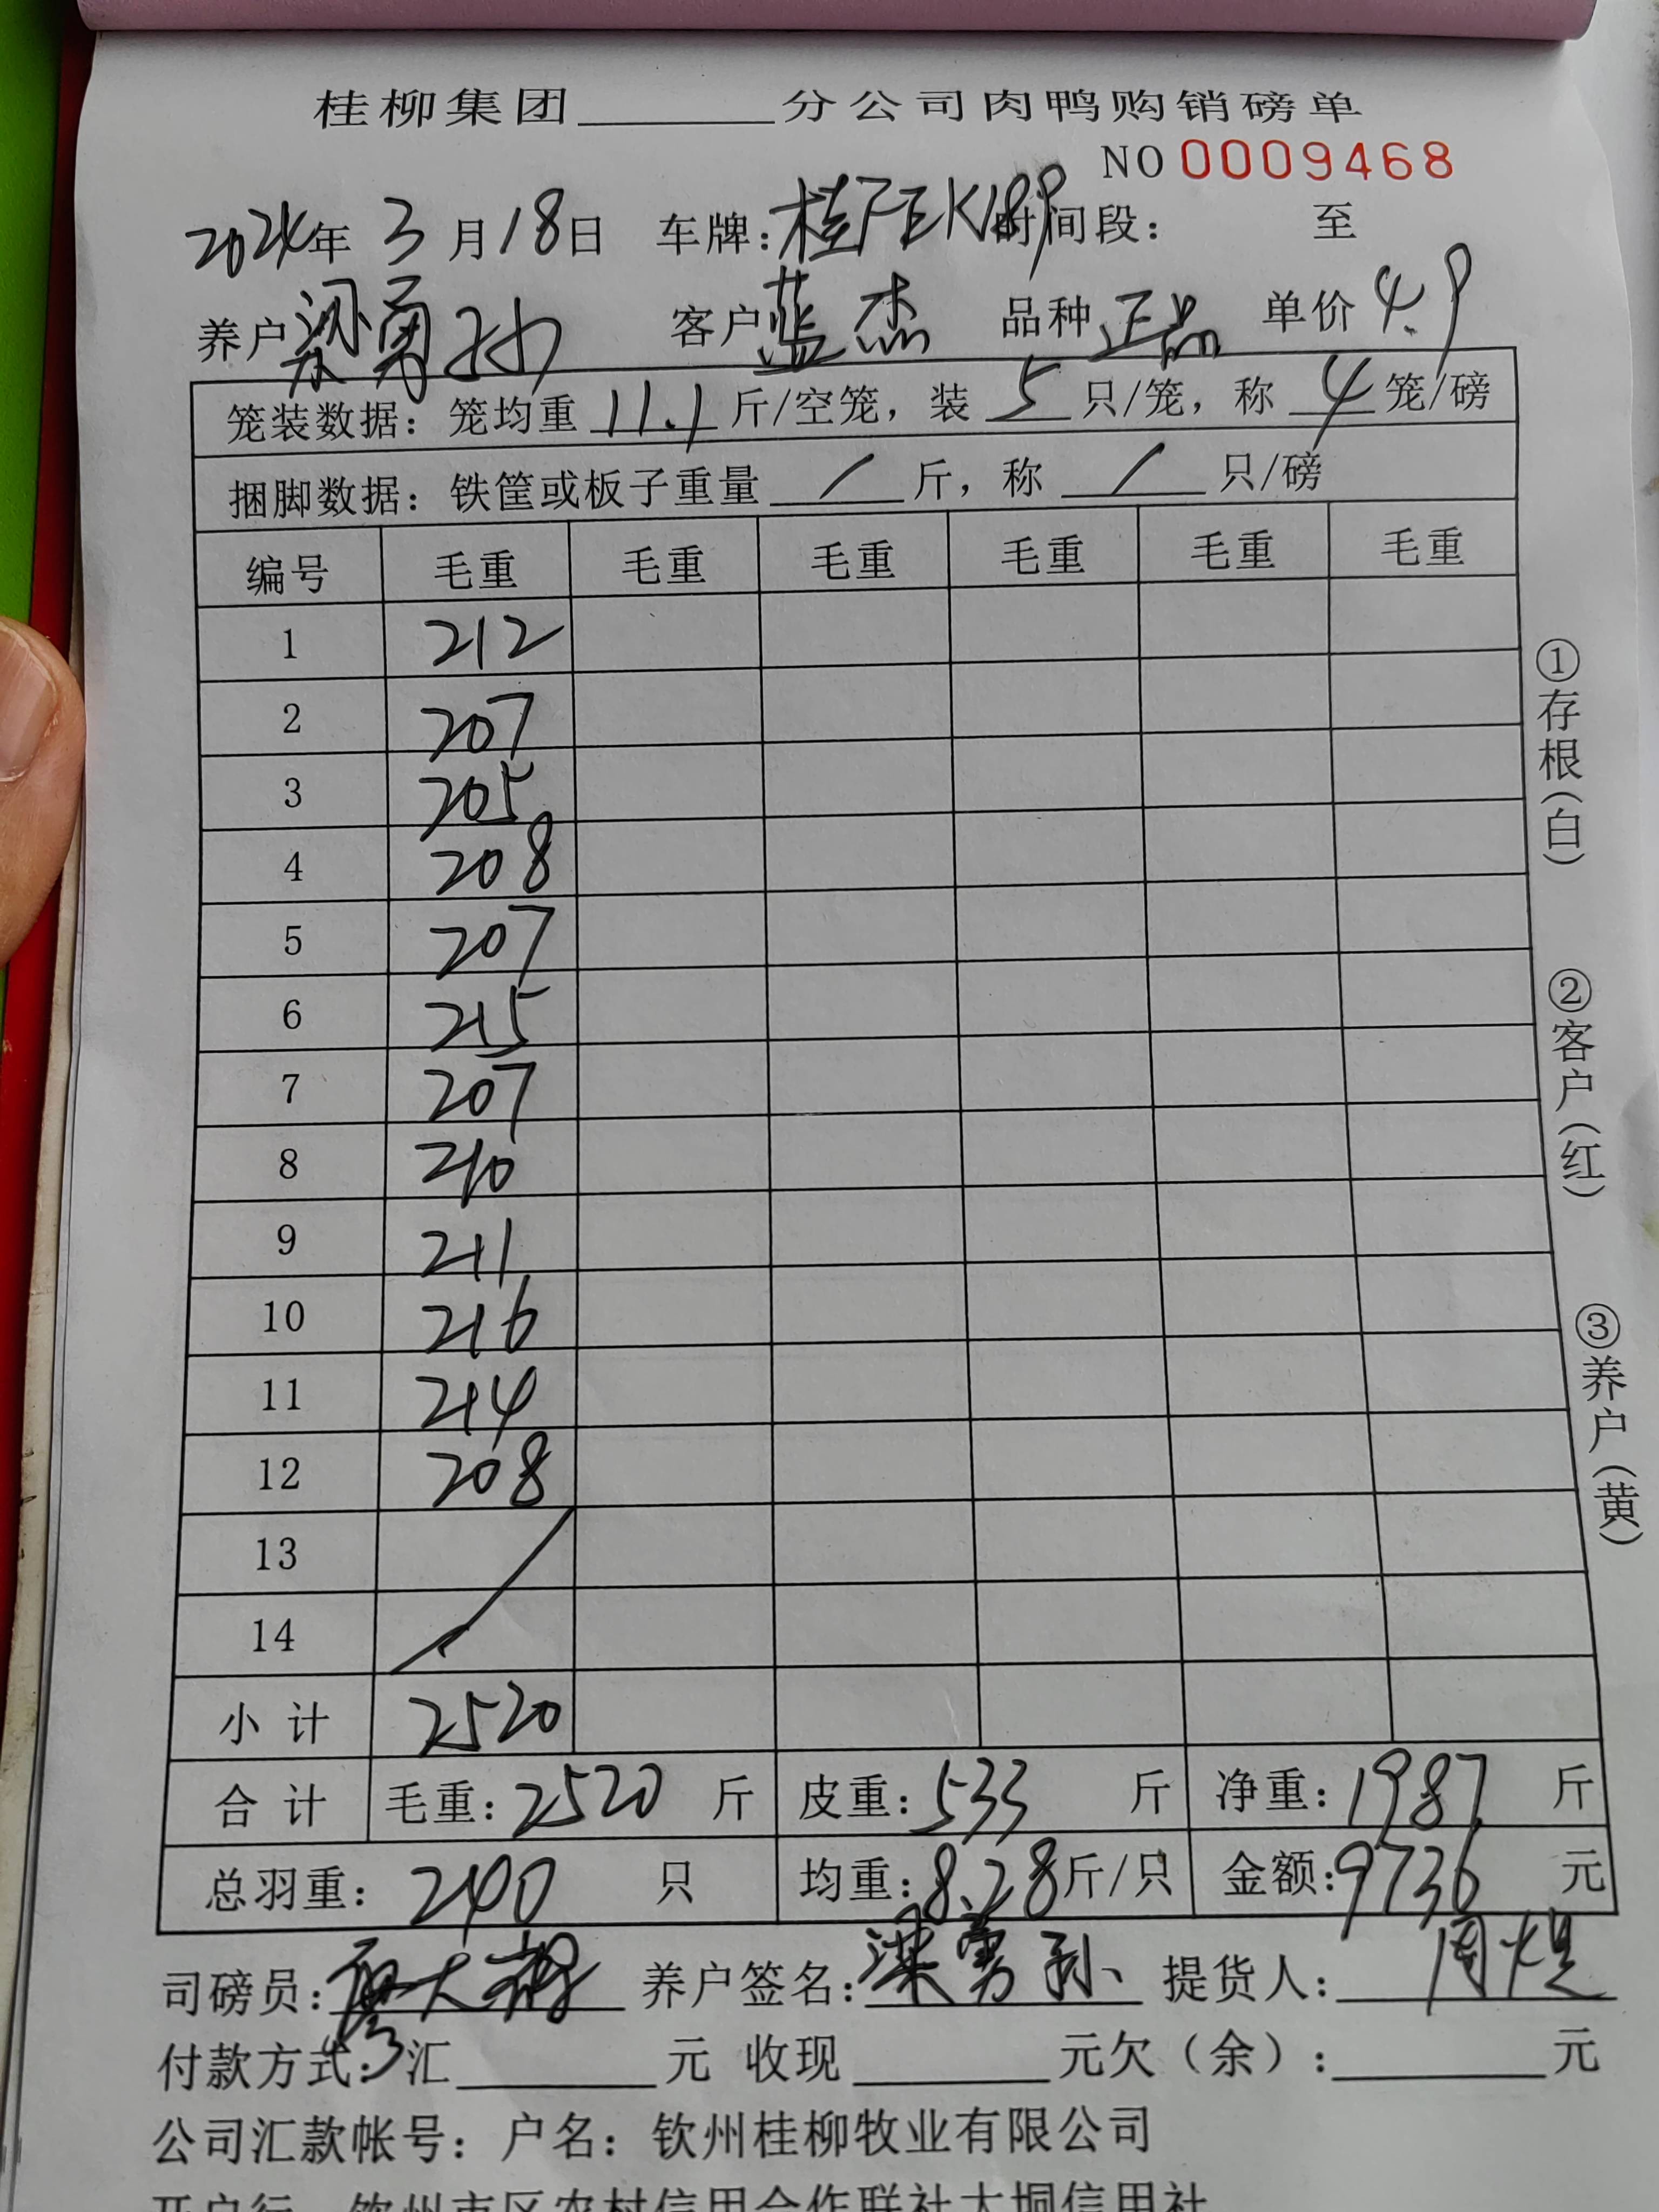 桂柳集团________分公司肉鸭购销磅单
NO 0009468
2024年 3 月 18 日 车牌：桂FEK189 时间段： 至
养户 梁勇孙 客户 蓝杰 品种 正品 单价 4.9
笼装数据：笼均重 11.1 斤/空笼，装 5 只/笼，称 4 笼/磅
捆脚数据：铁筐或板子重量 / 斤，称 / 只/磅
编号 毛重 毛重 毛重 毛重 毛重 毛重
1 212
2 207
3 205
4 208
5 207
6 215
7 207
8 210
9 211
10 216
11 214
12 208
13
14
小计 2520
合计 毛重：2520 斤 皮重：533 斤 净重：1987 斤
总羽重：240 只 均重：8.28 斤/只 金额：9736 元
司磅员： 养户签名：梁勇孙 提货人：
付款方式：汇________元 收现________元欠（余）：________元
公司汇款帐号：户名：钦州桂柳牧业有限公司
开户行 钦州市区农村信用合作联社大垌信用社
①存根（白）
②客户（红）
③养户（黄）